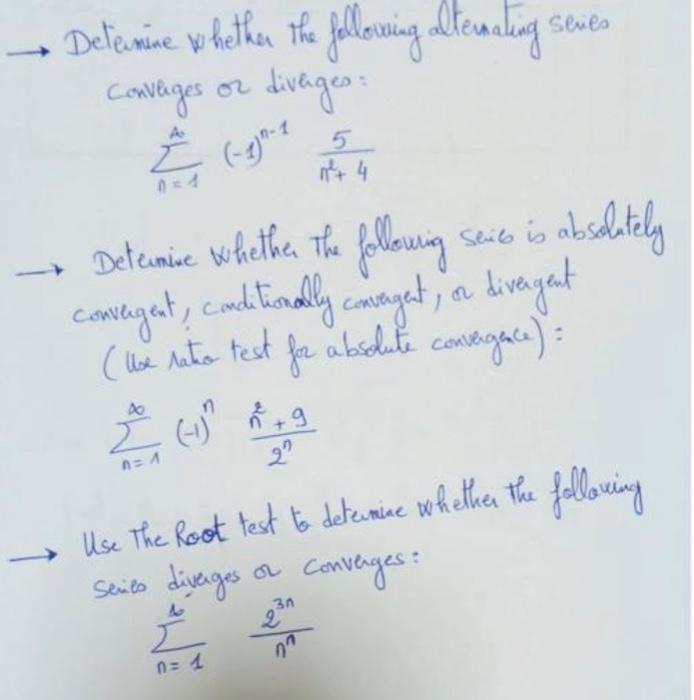 → Determine whether the following alternating series
converges or diverges:
∞
∑ (-1)^{n-1} 5/(n²+4)
n=1
→ Determine whether the following series is absolutely
convergent, conditionally convergent, or divergent
(Use ratio test for absolute convergence):
∞
∑ (-1)^n (n²+9)/2^n
n=1
→ Use The Root test to determine whether the following
series diverges or converges:
∞
∑ 2^{3n}/n^n
n=1